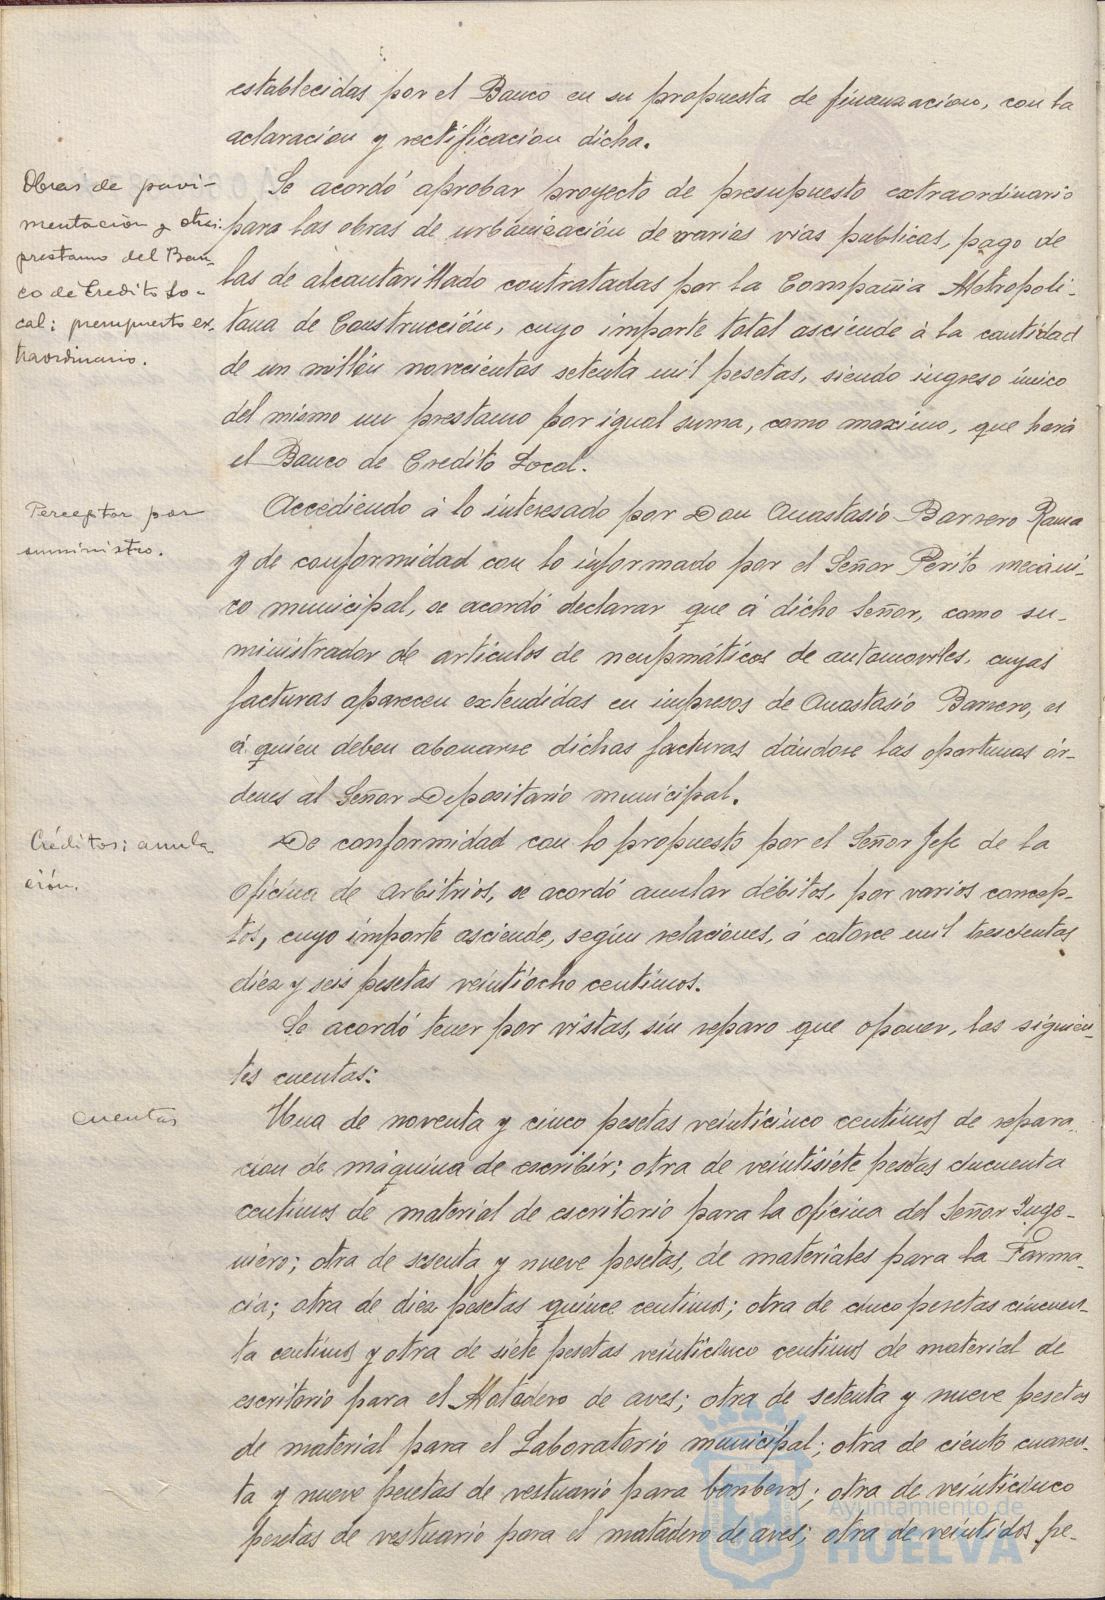 establecidas por el Banco en su propuesta de financiacion, con la
aclaracion y rectificacion dicha.
Obras de pavi-
mentación y otras:
prestamo del Ban-
co de Credito Lo-
cal: presupuesto ex-
traordinario.
Se acordó aprobar proyecto de presupuesto extraordinario
para las obras de urbanización de varias vias publicas, pago de
las de alcantarillado contratadas por la Compañia Metropoli-
tana de Construcción, cuyo importe total asciende á la cantidad
de un millón novecientas setenta mil pesetas, siendo ingreso único
del mismo un prestamo por igual suma, como maximo, que hará
el Banco de Credito Local.
Perceptor por
suministro.
Accediendo á lo interesado por Don Anastasio Barrero Rama
y de conformidad con lo informado por el Señor Perito mecáni-
co municipal, se acordó declarar que á dicho Señor, como su-
ministrador de articulos de neupmáticos de automoviles, cuyas
facturas aparecen extendidas en impresos de Anastasio Barrero, es
á quien deben abonarse dichas facturas dándose las oportunas ór-
denes al Señor Depositario municipal.
Créditos; anula
ción.
De conformidad con lo propuesto por el Señor Jefe de la
oficina de Arbitrios, se acordó anular débitos, por varios concep-
tos, cuyo importe asciende, según relaciones, á catorce mil trescientas
diez y seis pesetas veintiocho centimos.
Se acordó tener por vistas, sin reparo que oponer, las siguien-
tes cuentas:
cuentas
Una de noventa y cinco pesetas veinticinco centimos de repara-
cion de máquina de escribir; otra de veintisiete pesetas cincuenta
centimos de material de escritorio para la oficina del Señor Inge-
niero; otra de sesenta y nueve pesetas, de materiales para la Farma-
cia; otra de diez pesetas quince centimos; otra de cinco pesetas cincuen-
ta centimos y otra de siete pesetas veinticinco centimos de material de
escritorio para el Matadero de aves; otra de setenta y nueve pesetas
de material para el Laboratorio municipal; otra de ciento cuaren-
ta y nueve pesetas de vestuario para bomberos; otra de veinticinco
pesetas de vestuario para el matadero de aves; otra de veintidos pe-
Ayuntamiento de
HUELVA